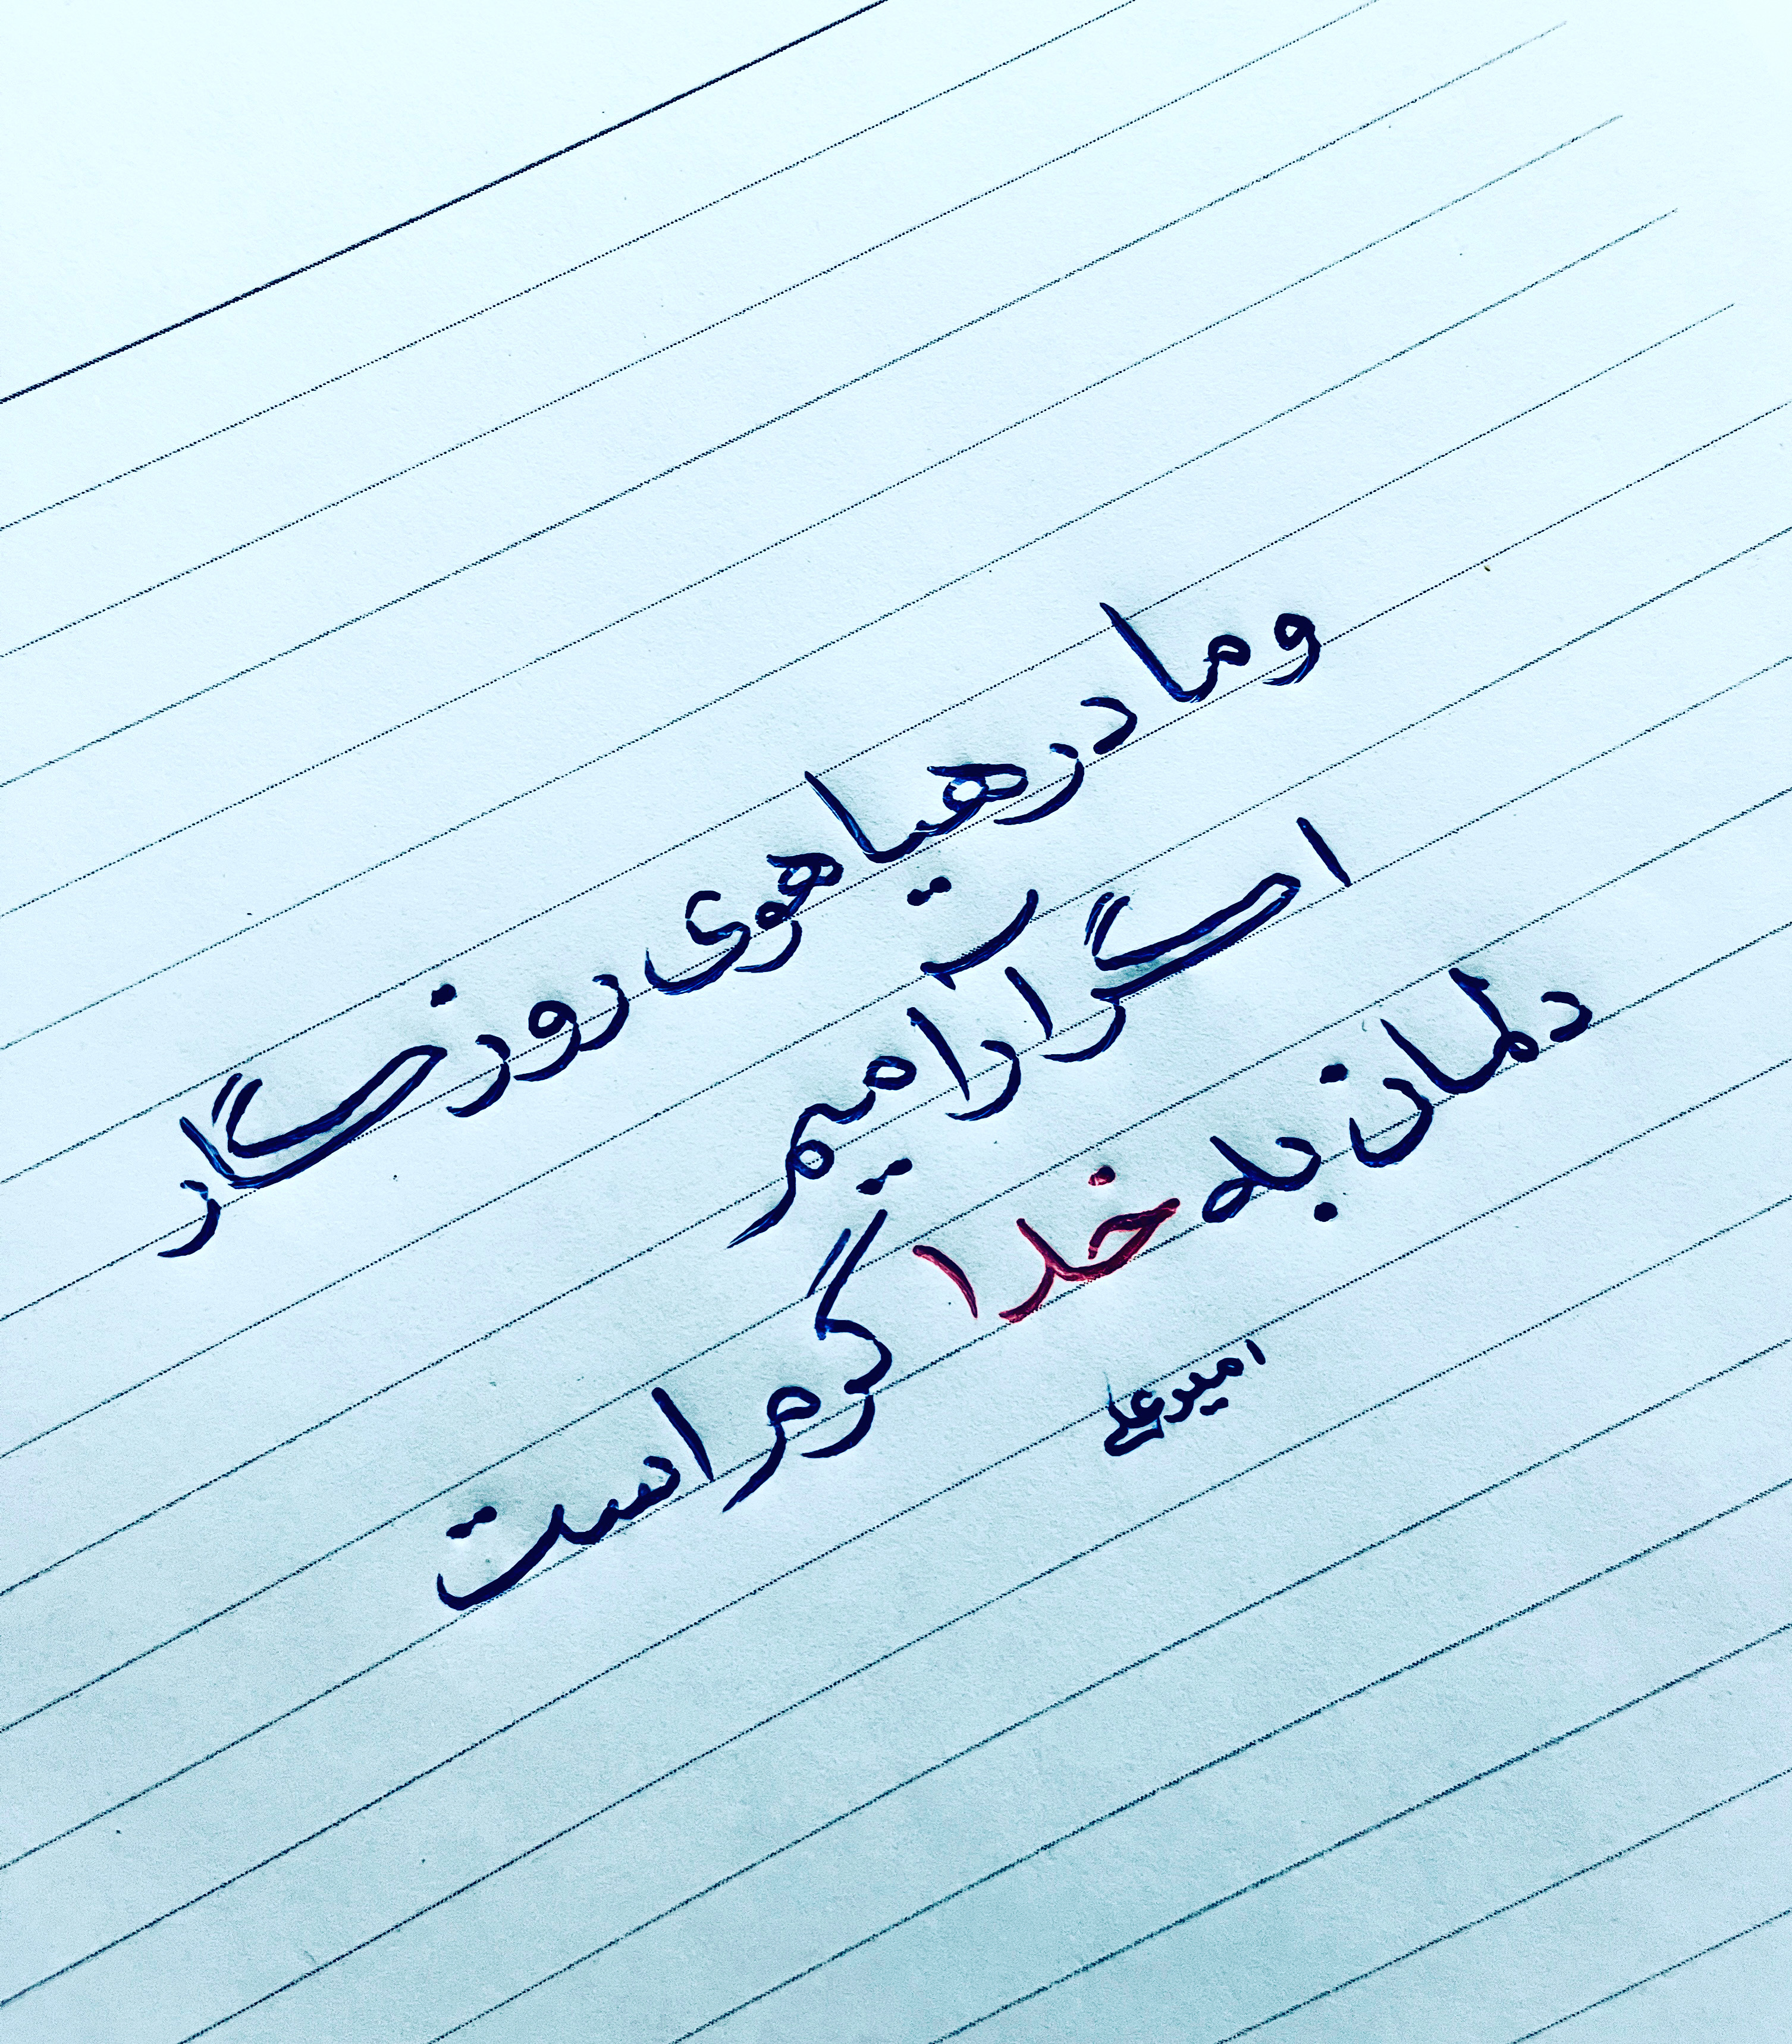 و ما در هیاهوی روزگار
اگر آرامیم
دلمان به خدا گرم است
امیدعلی